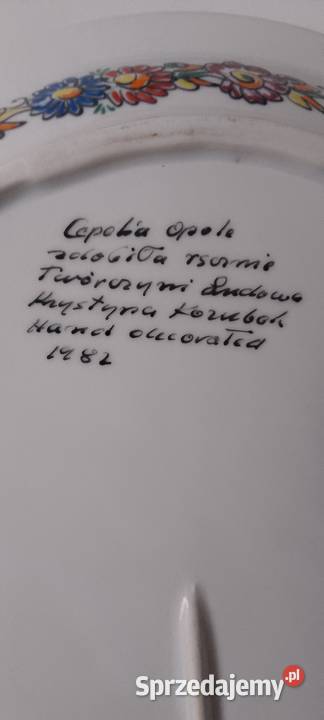 Cepelia Opole
zdobiła ręcznie
Twórczyni Ludowa
Krystyna Kozubek
Hand decorated
1982
Sprzedajemy.pl